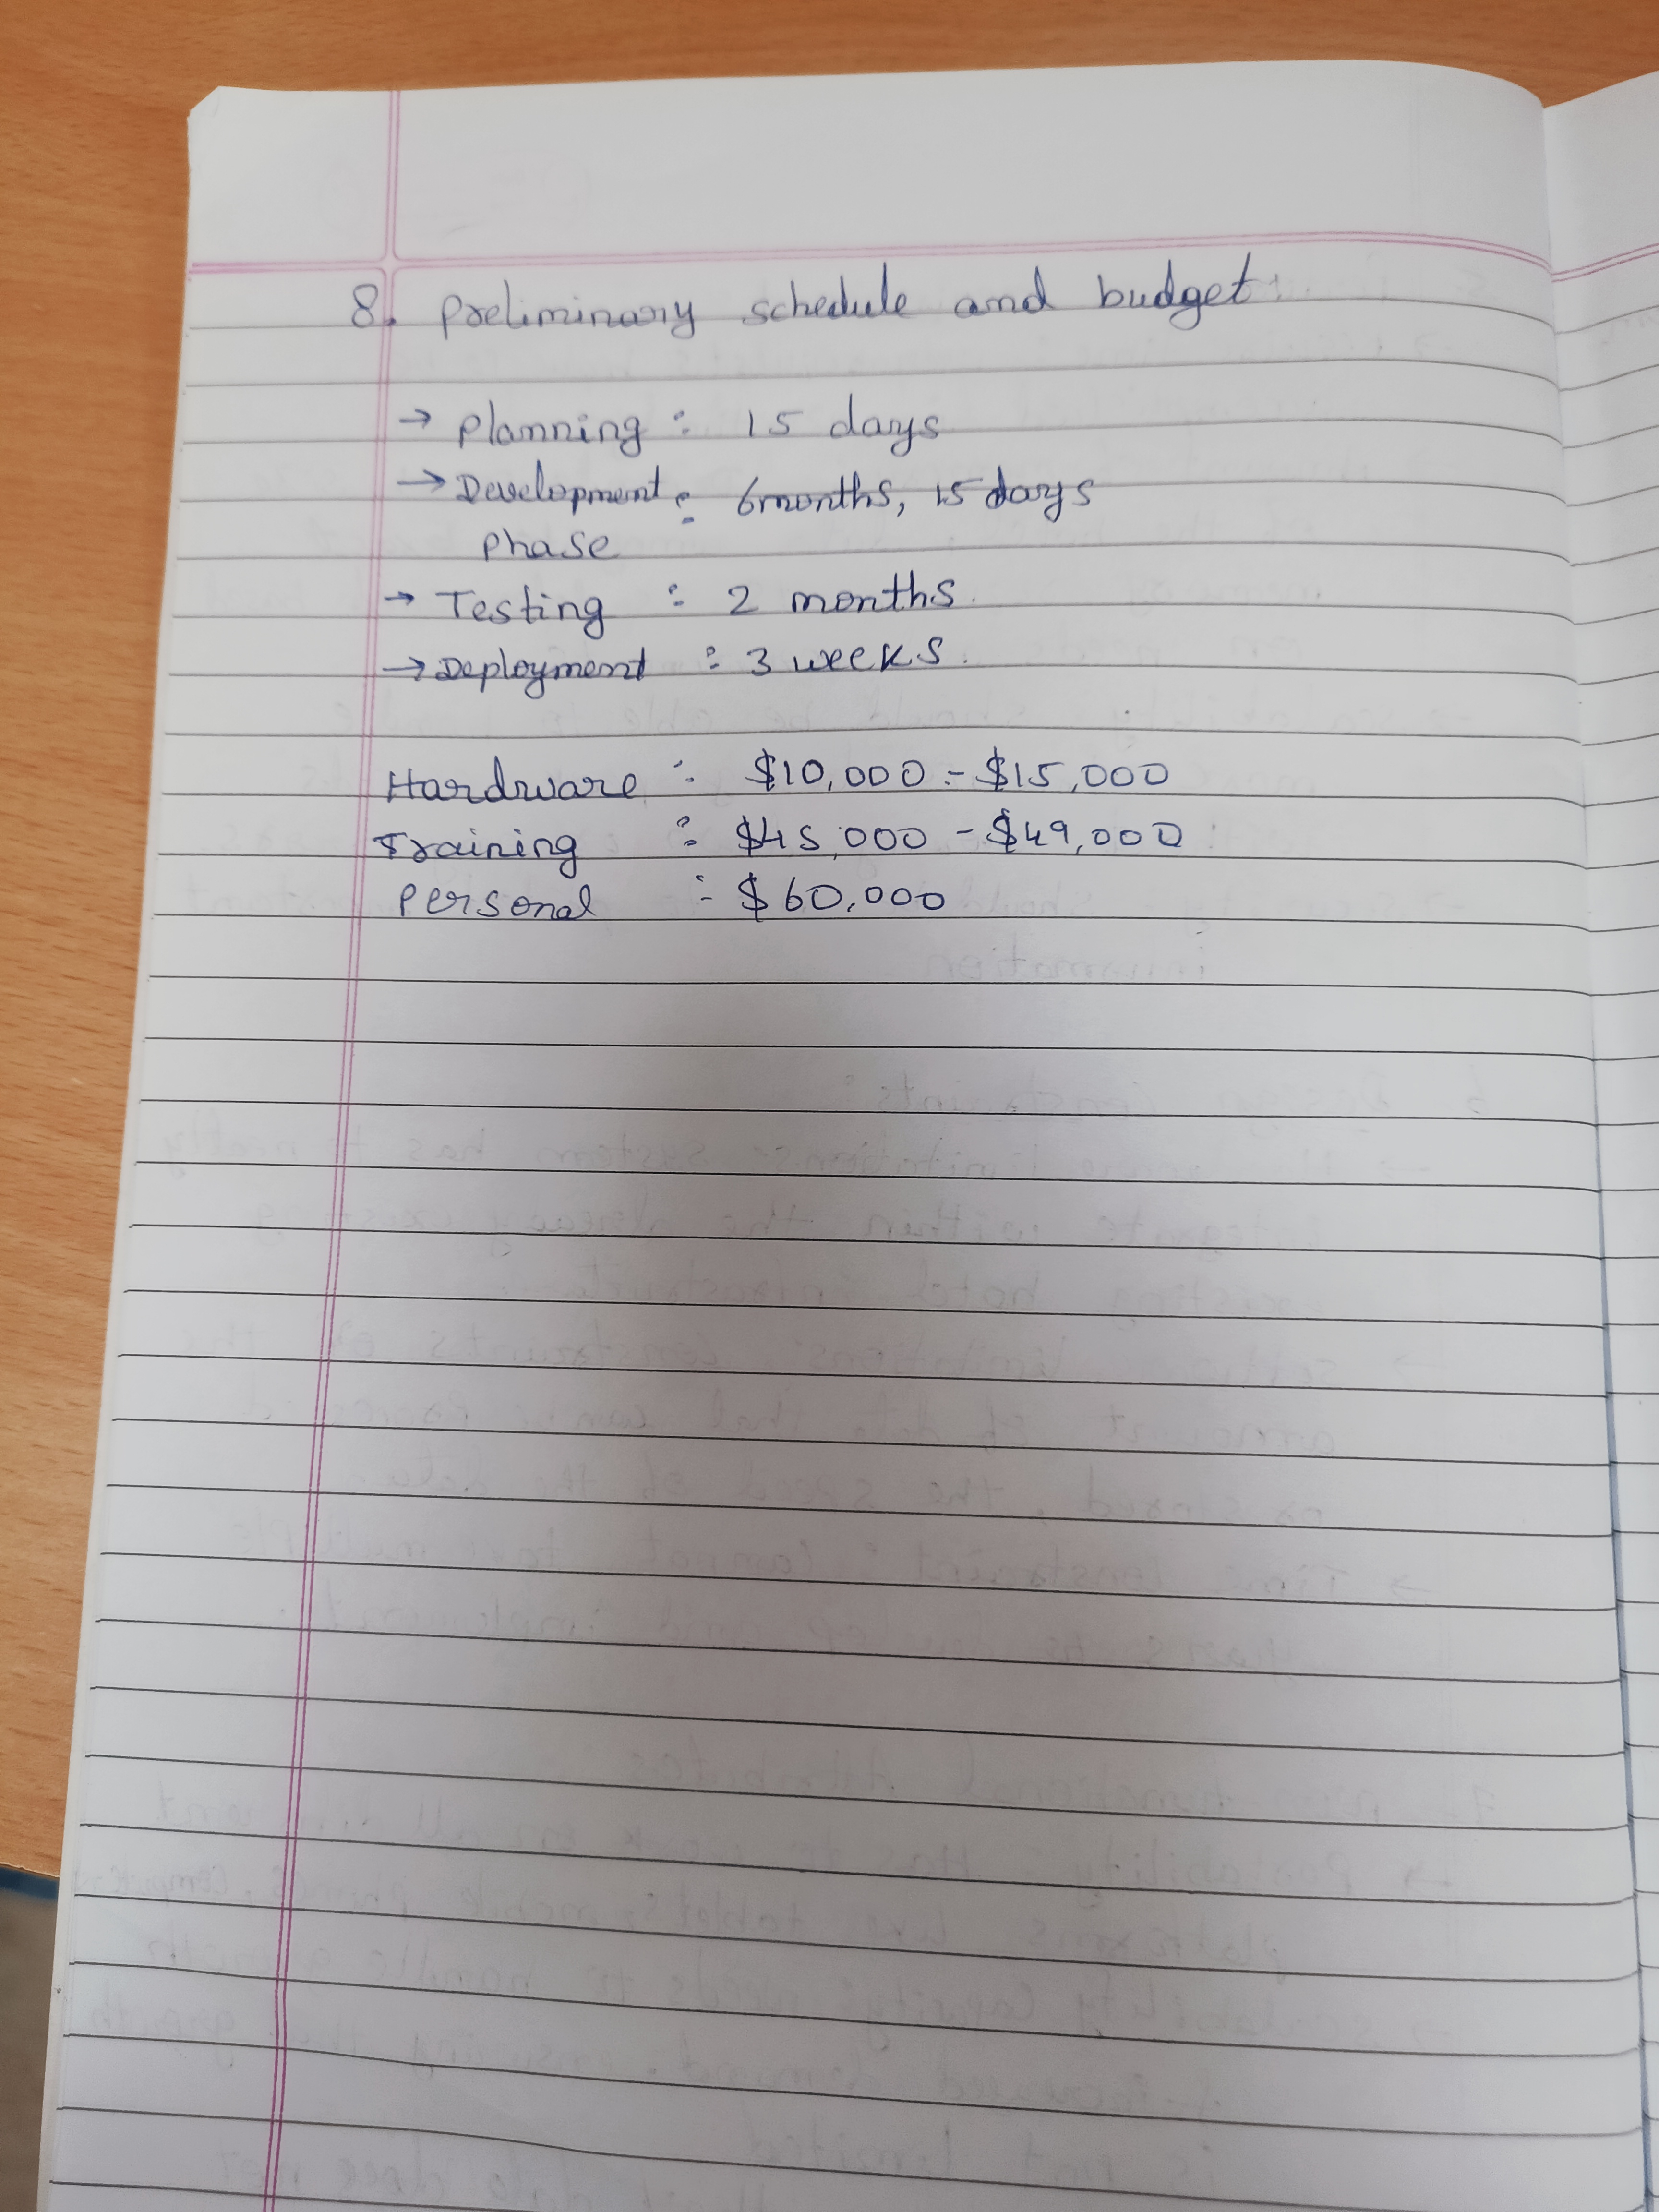 8. Preliminary schedule and budget:
→ Planning : 15 days
→ Development : 6months, 15 days
Phase
→ Testing : 2 months.
→ Deployment : 3 weeks.
Hardware : $10,000 - $15,000
Training : $45,000 - $49,000
Personal : $60,000